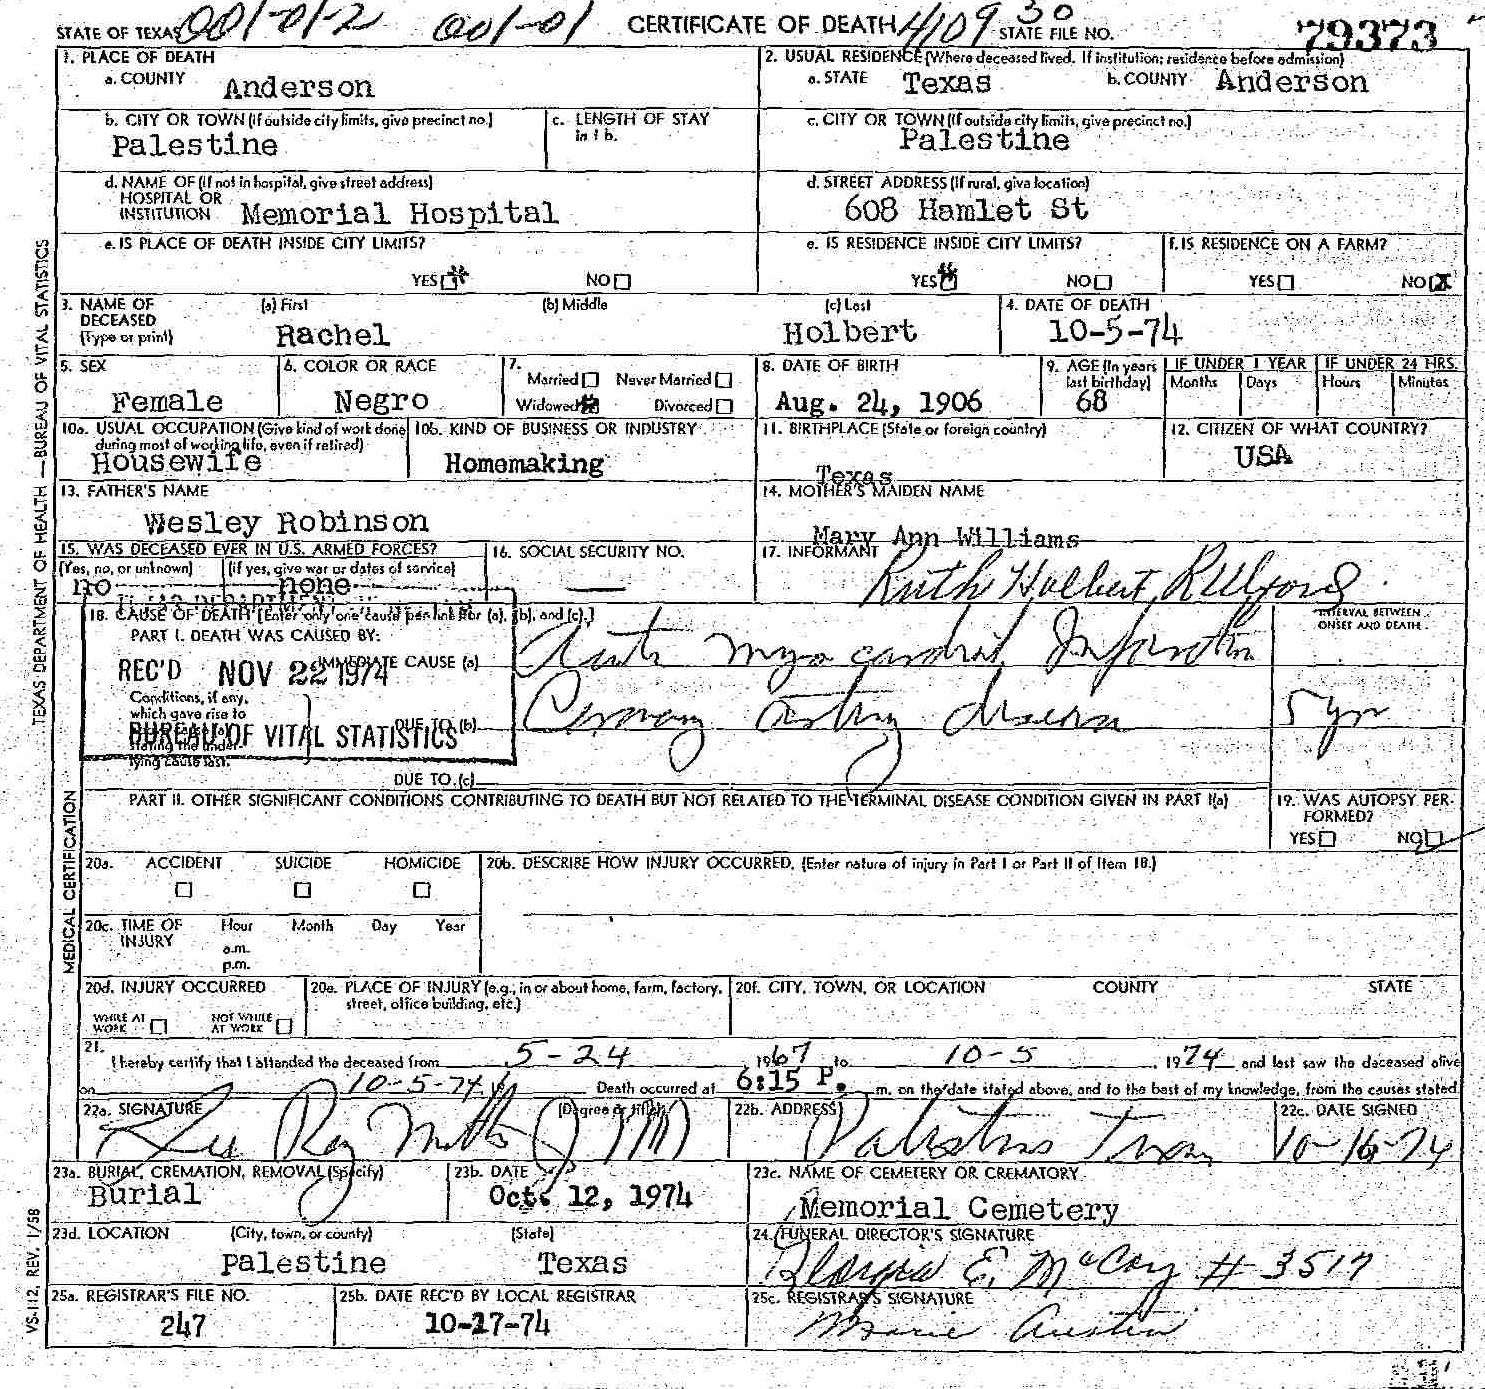 STATE OF TEXAS 001-01-2 001-01 CERTIFICATE OF DEATH 4109 30 STATE FILE NO. 79373
1. PLACE OF DEATH
a. COUNTY Anderson
2. USUAL RESIDENCE (Where deceased lived. If institution: residence before admission)
a. STATE Texas b. COUNTY Anderson
b. CITY OR TOWN (If outside city limits, give precinct no.)
Palestine
c. LENGTH OF STAY
in 1 b.
c. CITY OR TOWN (If outside city limits, give precinct no.)
Palestine
d. NAME OF (If not in hospital, give street address)
HOSPITAL OR
INSTITUTION Memorial Hospital
d. STREET ADDRESS (If rural, give location)
608 Hamlet St
e. IS PLACE OF DEATH INSIDE CITY LIMITS?
YES NO
e. IS RESIDENCE INSIDE CITY LIMITS?
YES NO
f. IS RESIDENCE ON A FARM?
YES NO X
3. NAME OF
DECEASED
(Type or print)
(a) First (b) Middle (c) Last
Rachel Holbert
4. DATE OF DEATH
10-5-74
5. SEX
Female
6. COLOR OR RACE
Negro
7.
Married Never Married
Widowed Divorced
8. DATE OF BIRTH
Aug. 24, 1906
9. AGE (In years
last birthday)
68
IF UNDER 1 YEAR
Months Days
IF UNDER 24 HRS.
Hours Minutes
10a. USUAL OCCUPATION (Give kind of work done
during most of working life, even if retired)
Housewife
10b. KIND OF BUSINESS OR INDUSTRY
Homemaking
11. BIRTHPLACE (State or foreign country)
Texas
12. CITIZEN OF WHAT COUNTRY?
USA
13. FATHER'S NAME
Wesley Robinson
14. MOTHER'S MAIDEN NAME
Mary Ann Williams
15. WAS DECEASED EVER IN U.S. ARMED FORCES?
(Yes, no, or unknown) (If yes, give war or dates of service)
no none
16. SOCIAL SECURITY NO.
17. INFORMANT
Ruth Holbert
18. CAUSE OF DEATH [Enter only one cause per line for (a), (b), and (c).]
PART I. DEATH WAS CAUSED BY:
IMMEDIATE CAUSE (a) Acute Myocardial Infarction
REC'D NOV 22 1974
BUREAU OF VITAL STATISTICS
Conditions, if any,
which gave rise to
stating the under-
lying cause last.
DUE TO (b) Coronary Artery disease
DUE TO (c)
INTERVAL BETWEEN
ONSET AND DEATH
5 yr
PART II. OTHER SIGNIFICANT CONDITIONS CONTRIBUTING TO DEATH BUT NOT RELATED TO THE TERMINAL DISEASE CONDITION GIVEN IN PART I(a)
19. WAS AUTOPSY PER-
FORMED?
YES NO
20a. ACCIDENT SUICIDE HOMICIDE
20b. DESCRIBE HOW INJURY OCCURRED. (Enter nature of injury in Part I or Part II of Item 18.)
20c. TIME OF
INJURY
Hour Month Day Year
a.m.
p.m.
20d. INJURY OCCURRED
WHILE AT
WORK
NOT WHILE
AT WORK
20e. PLACE OF INJURY (e.g., in or about home, farm, factory,
street, office building, etc.)
20f. CITY, TOWN, OR LOCATION COUNTY STATE
21.
I hereby certify that I attended the deceased from 5-24 1967 to 10-5 1974 and last saw the deceased alive
on 10-5-74 Death occurred at 6:15 P. m. on the date stated above, and to the best of my knowledge, from the causes stated
22a. SIGNATURE (Degree or title)
22b. ADDRESS
Palestine Texas
22c. DATE SIGNED
10-16-74
23a. BURIAL, CREMATION, REMOVAL (Specify)
Burial
23b. DATE
Oct. 12, 1974
23c. NAME OF CEMETERY OR CREMATORY
Memorial Cemetery
23d. LOCATION (City, town, or county) (State)
Palestine Texas
24. FUNERAL DIRECTOR'S SIGNATURE
E. McCoy # 3517
25a. REGISTRAR'S FILE NO.
247
25b. DATE REC'D BY LOCAL REGISTRAR
10-17-74
25c. REGISTRAR'S SIGNATURE
Marie Austin
TEXAS DEPARTMENT OF HEALTH — BUREAU OF VITAL STATISTICS
MEDICAL CERTIFICATION
VS-112, REV. 1/58